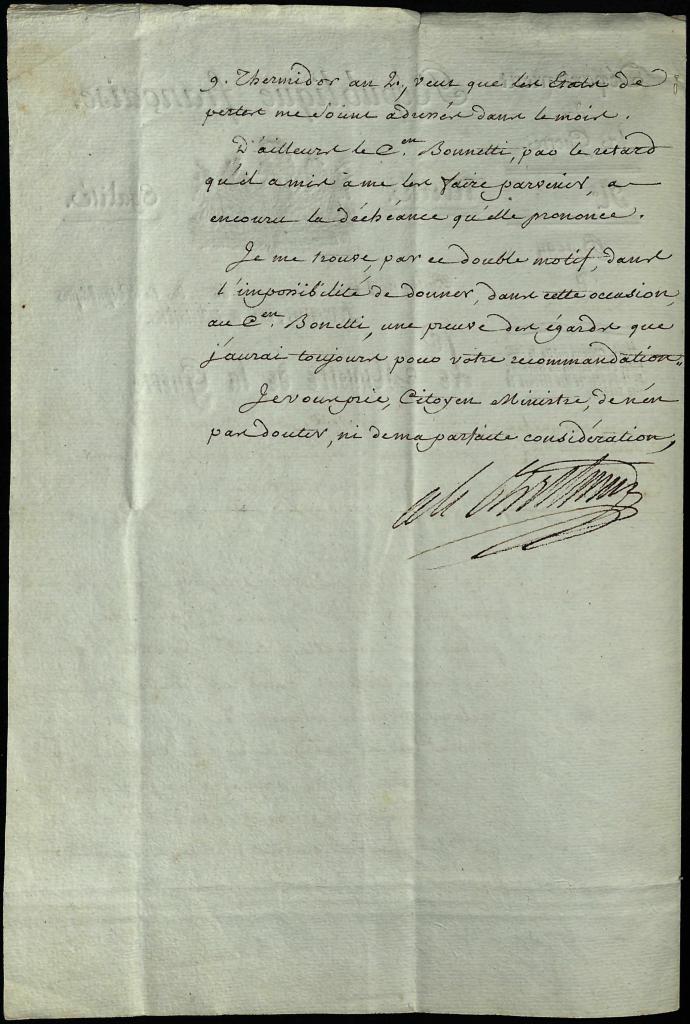 9. Thermidor an 2., veut que les Etats de
pertes me soient adressés dans le mois.
D'ailleurs le C.en Bonnetti, par le retard
qu'il a mis à me les faire parvenir, a
encouru la déchéance qu'elle prononce.
Je me trouve, par ce double motif, dans
l'impossibilité de donner, dans cette occasion,
au C.en Bonetti, une preuve des égards que
j'aurai toujours pour votre recommandation.
Je vous prie, Citoyen Ministre, de n'en
pas douter, ni de ma parfaite considération,